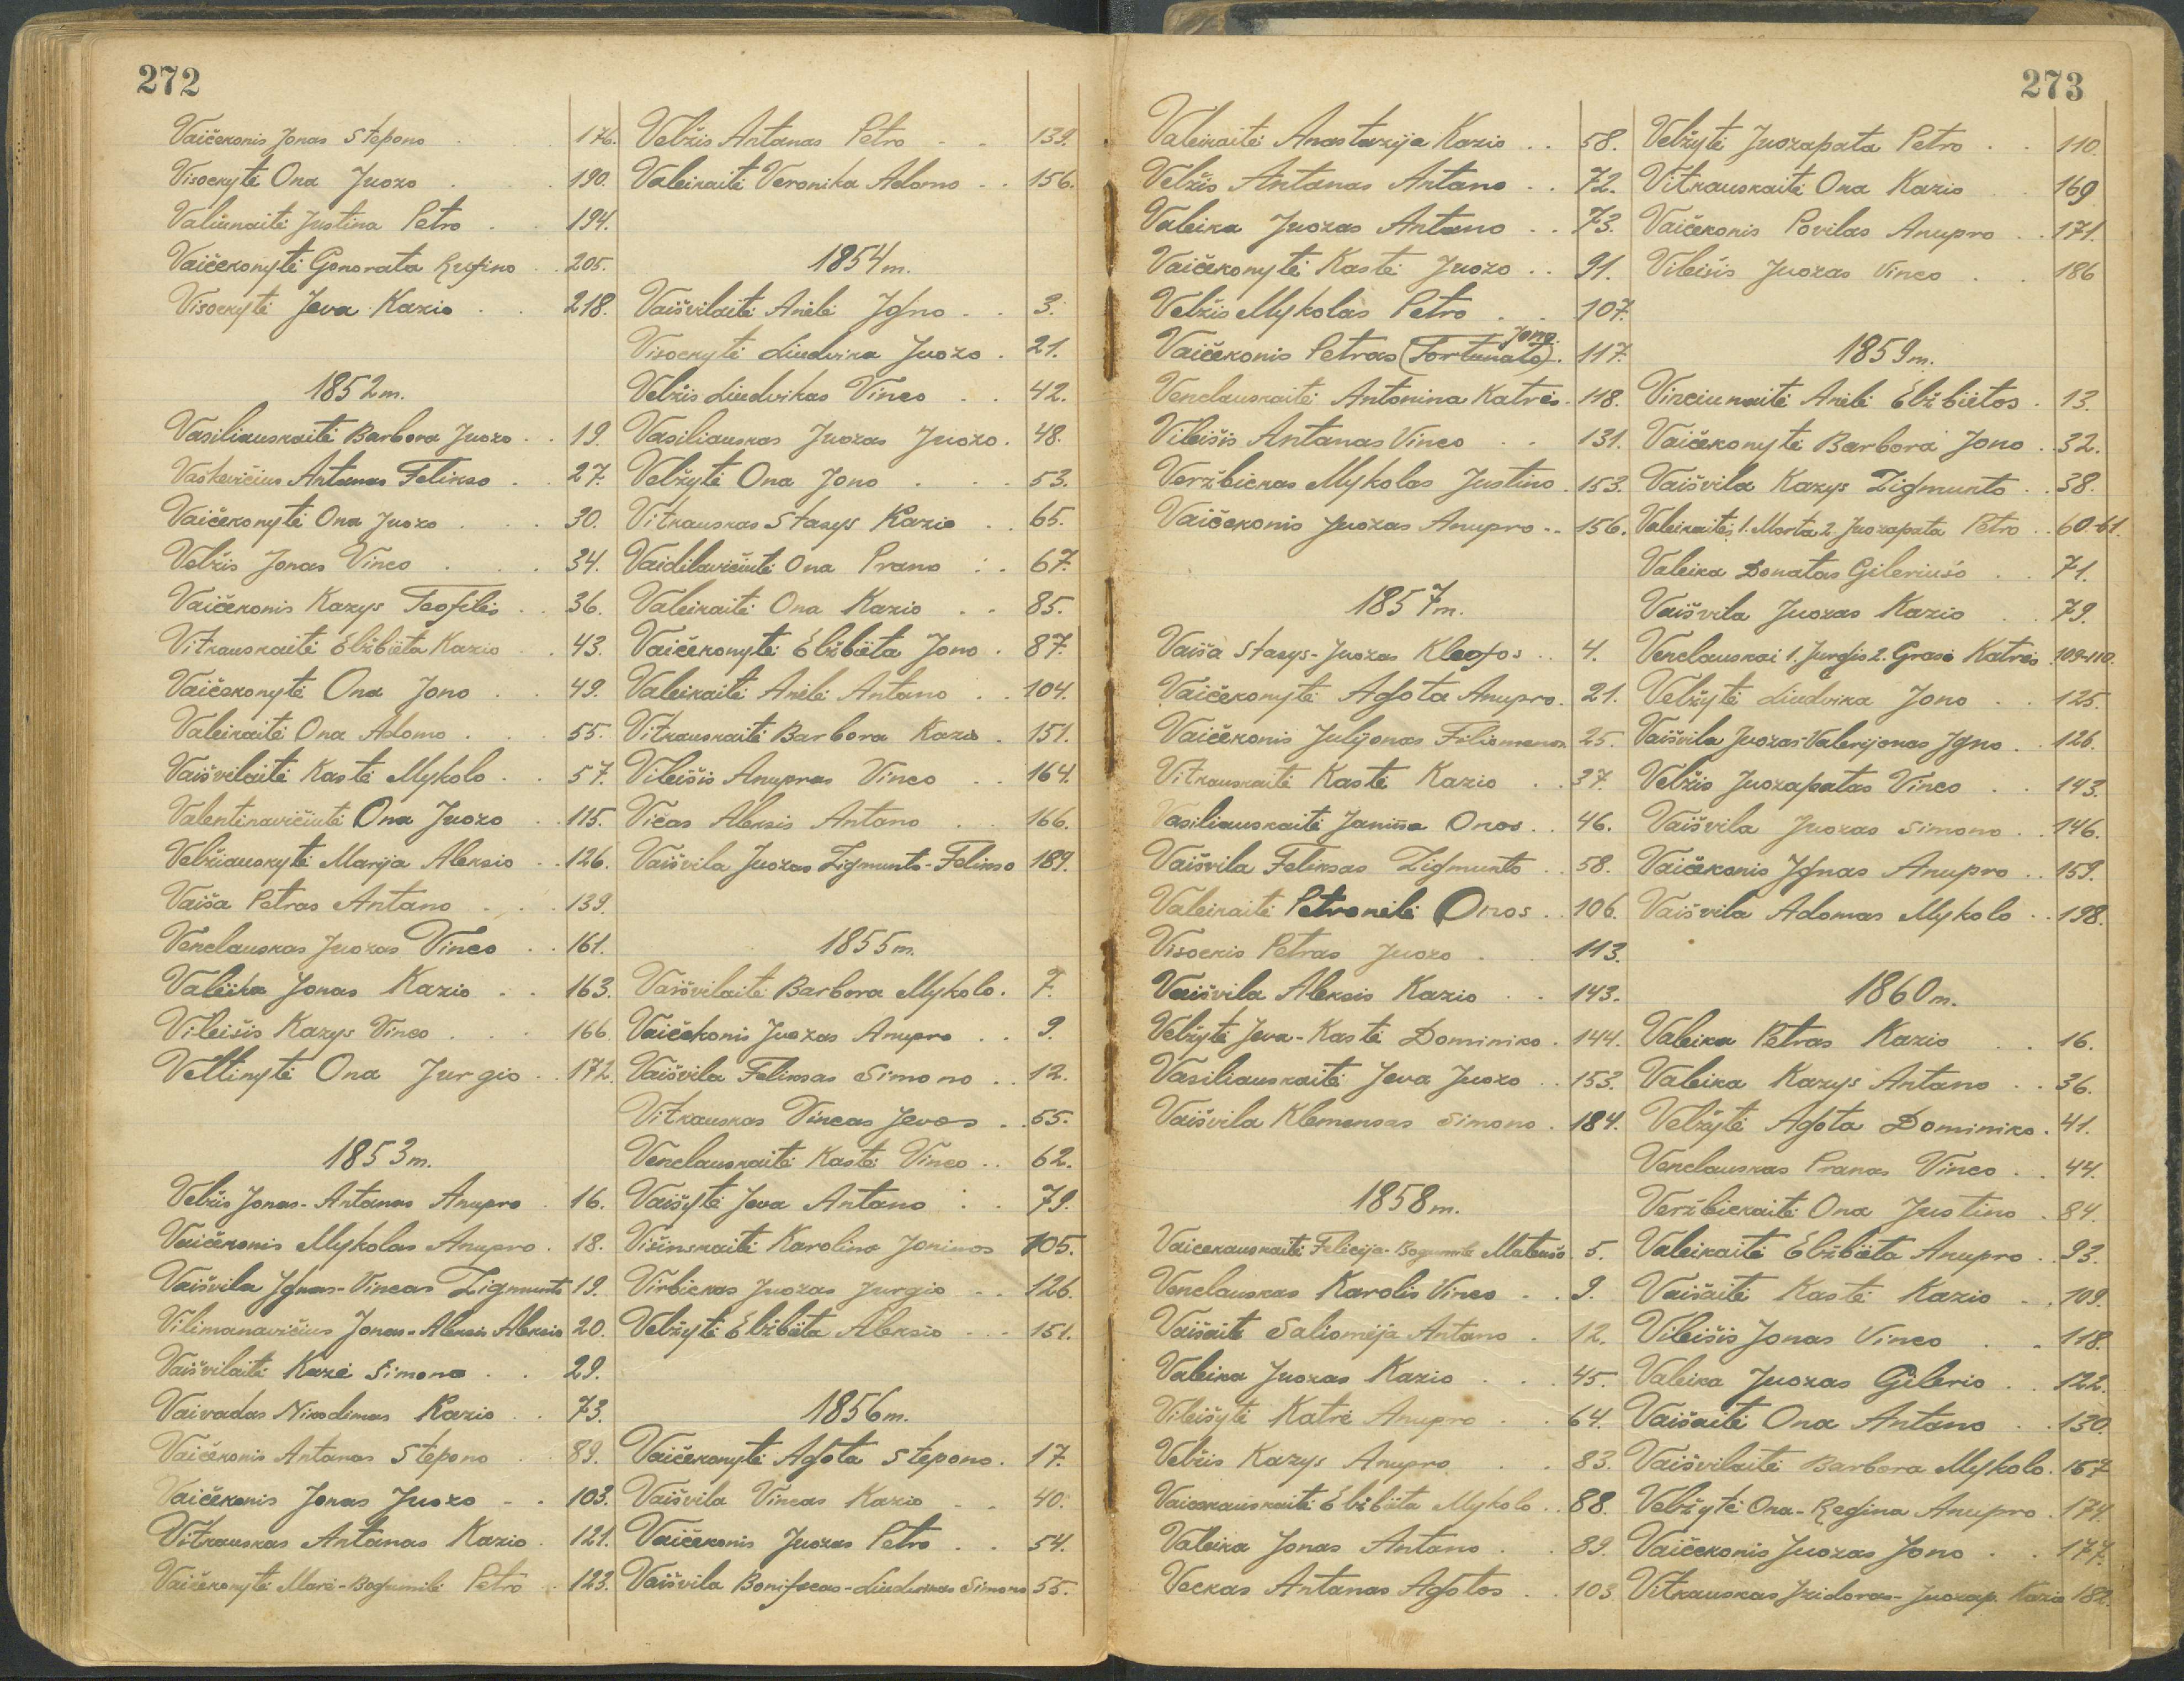 272
Vaičekonis Jonas Stepono . 176.
Visockytė Ona Juozo . . 190.
Valiunaitė Justina Petro . . 194.
Vaičekonytė Gonorata Rufino . . 205.
Visockytė Jeva Kazio . . 218.
1852 m.
Vasiliauskaitė Barbora Juozo . . 19.
Vaškevičius Antanas Felikso . . 27.
Vaičekonytė Ona Juozo . . . 30.
Velžis Jonas Vinco . . . 34.
Vaičekonis Kazys Teofilės . . 36.
Vitkauskaitė Elžbieta Kazio . . 43.
Vaičekonytė Ona Jono . . 49.
Valeikaitė Ona Adomo . . . 55.
Vaišvilaitė Kastė Mykolo . . 57.
Valentinavičiutė Ona Juozo . . 115.
Velžiauskytė Marija Aleksio . . 126.
Vaiša Petras Antano . . . 139.
Venclauskas Juozas Vinco . . 161.
Valeika Jonas Kazio . . 163.
Vileišis Kazys Vinco . . . 166.
Veltinytė Ona Jurgio . . 172.
1853 m.
Velžis Jonas-Antanas Anupro . 16.
Vaičekonis Mykolas Anupro . 18.
Vaišvila Ignas-Vincas Zigmunto 19.
Vilimanavičius Jonas-Aleksis Aleksio 20.
Vaišvilaitė Kazė Simono . . 29.
Vaivadas Nikodimas Kazio . . 73.
Vaičekonis Antanas Stepono . . 89.
Vaičekonis Jonas Juozo . . 103.
Vitkauskas Antanas Kazio . 121.
Vaičekonytė Marė-Bogumilė Petro . 123.
Velžis Antanas Petro . . 139.
Valeikaitė Veronika Adomo . . 156.
1854 m.
Vaišvilaitė Anėlė Igno . . 3.
Visockytė Liudvika Juozo . 21.
Velžis Liudvikas Vinco . . 42.
Vasiliauskas Juozas Juozo . 48.
Velžytė Ona Jono . . . 53.
Vitkauskas Stasys Kazio . . 65.
Vaidilavičiutė Ona Prano . . 67.
Valeikaitė Ona Kazio . . 85.
Vaičekonytė Elžbieta Jono . 87.
Valeikaitė Anėlė Antano . . 104.
Vitkauskaitė Barbora Kazio . 151.
Vileišis Anupras Vinco . . 164.
Vičas Aleksis Antano . . 166.
Vaišvila Juozas Zigmunto-Felikso 189.
1855 m.
Vaišvilaitė Barbora Mykolo . 7.
Vaičekonis Juozas Anupro . . 9.
Vaišvila Feliksas Simono . . 12.
Vitkauskas Vincas Jevos . . 55.
Venclauskaitė Kastė Vinco . . 62.
Vaišytė Jeva Antano . . 79.
Višinskaitė Karolina Joninos 105.
Virbickas Juozas Jurgio . . 126.
Velžytė Elžbieta Aleksio . . 151.
1856 m.
Vaičekonytė Agota Stepono . 17.
Vaišvila Vincas Kazio . . 40.
Vaičekonis Juozas Petro . . 54.
Vaišvila Bonifacas-Liudvikas Simono 55.
273
Valeikaitė Anastazija Kazio . . 58.
Velžis Antanas Antano . . 72.
Valeika Juozas Antano . . 73.
Vaičekonytė Kastė Juozo . . 91.
Velžis Mykolas Petro . . 107.
Jono
Vaičekonis Petras (Fortunato) . 117.
Venclauskaitė Antonina Katrės . 118.
Vileišis Antanas Vinco . . 131.
Veržbickas Mykolas Justino . 153.
Vaičekonis Juozas Anupro . . 156.
1857 m.
Vaiša Stasys-Juozas Kleofos . . 4.
Vaičekonytė Agota Anupro . 21.
Vaičekonis Julijonas Filomenos 25.
Vitkauskaitė Kastė Kazio . . 37.
Vasiliauskaitė Janina Onos . . 46.
Vaišvila Feliksas Zigmunto . . 58.
Valeikaitė Petronėlė Onos . . 106.
Visockis Petras Juozo . . 113.
Vaišvila Aleksis Kazio . . 143.
Velžytė Jeva-Kastė Dominiko . 144.
Vasiliauskaitė Jeva Juozo . . 153.
Vaišvila Klemensas Simono . 184.
1858 m.
Vaicekauskaitė Felicija-Bogumilė Mateušo 5.
Venclauskas Karolis Vinco . . 9.
Vaišaitė Saliomėja Antano . 12.
Valeika Juozas Kazio . . . 45.
Vileišytė Katrė Anupro . . 64.
Velžis Kazys Anupro . . 83.
Vaicekauskaitė Elžbieta Mykolo . . 88.
Valeika Jonas Antano . . 89.
Vockas Antanas Agotos . . 103
Velžytė Juozapata Petro . . 110.
Vitkauskaitė Ona Kazio . . 169
Vaičekonis Povilas Anupro . . 171.
Vileišis Juozas Vinco . . 186
1859 m.
Vinciunaitė Anėlė Elžbietos . 13.
Vaičekonytė Barbora Jono . 32.
Vaišvila Kazys Zigmunto . . 38.
Valeikaitės 1. Morta 2. Juozapata Petro . . 60-61.
Valeika Donatas Gileriušo . . 71.
Vaišvila Juozas Kazio . . 79.
Venclauskai 1. Jurgis 2. Grasė Katrės 109-110.
Velžytė Liudvika Jono . . 125.
Vaišvila Juozas-Valerijonas Igno . . 126.
Velžis Juozapatas Vinco . . 143.
Vaišvila Juozas Simono . . 146.
Vaičekonis Ignas Anupro . . 159.
Vaišvila Adomas Mykolo . . 198.
1860 m.
Valeika Petras Kazio . . 16.
Valeika Kazys Antano . . 36.
Velžytė Agota Dominiko . 41.
Venclauskas Pranas Vinco . . 44.
Veržbickaitė Ona Justino . 84.
Valeikaitė Elžbieta Anupro . . 93.
Vaišaitė Kastė Kazio . . 109.
Vileišis Jonas Vinco . . 118.
Valeika Juozas Gilerio . . 122.
Vaišaitė Ona Antano . . 130.
Vaišvilaitė Barbora Mykolo . 157
Velžytė Ona-Regina Anupro . 174.
Vaičekonis Juozas Jono . . 177.
Vitkauskas Izidoras-Juozap. Kazio 182.